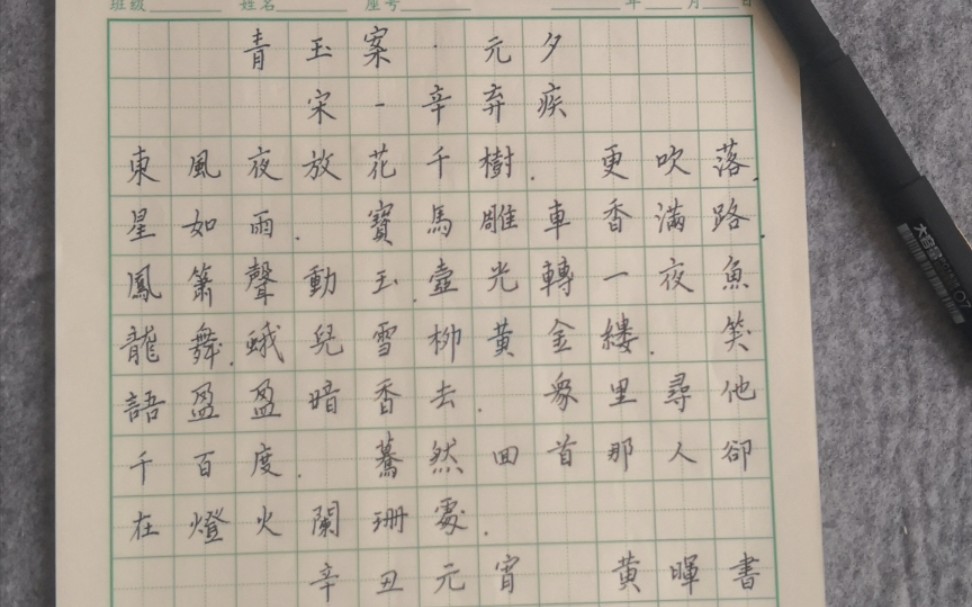 班级 姓名 座号 年 月 日
青玉案·元夕
宋一辛弃疾
東風夜放花千樹.更吹落.
星如雨.寶馬雕車香滿路.
鳳簫聲動玉.壺光轉一夜魚
龍舞.蛾兒雪柳黄金縷.笑
語盈盈暗香去.衆里尋他
千百度.驀然回首那人卻
在燈火闌珊處.
辛丑元宵 黄暉書
大容量